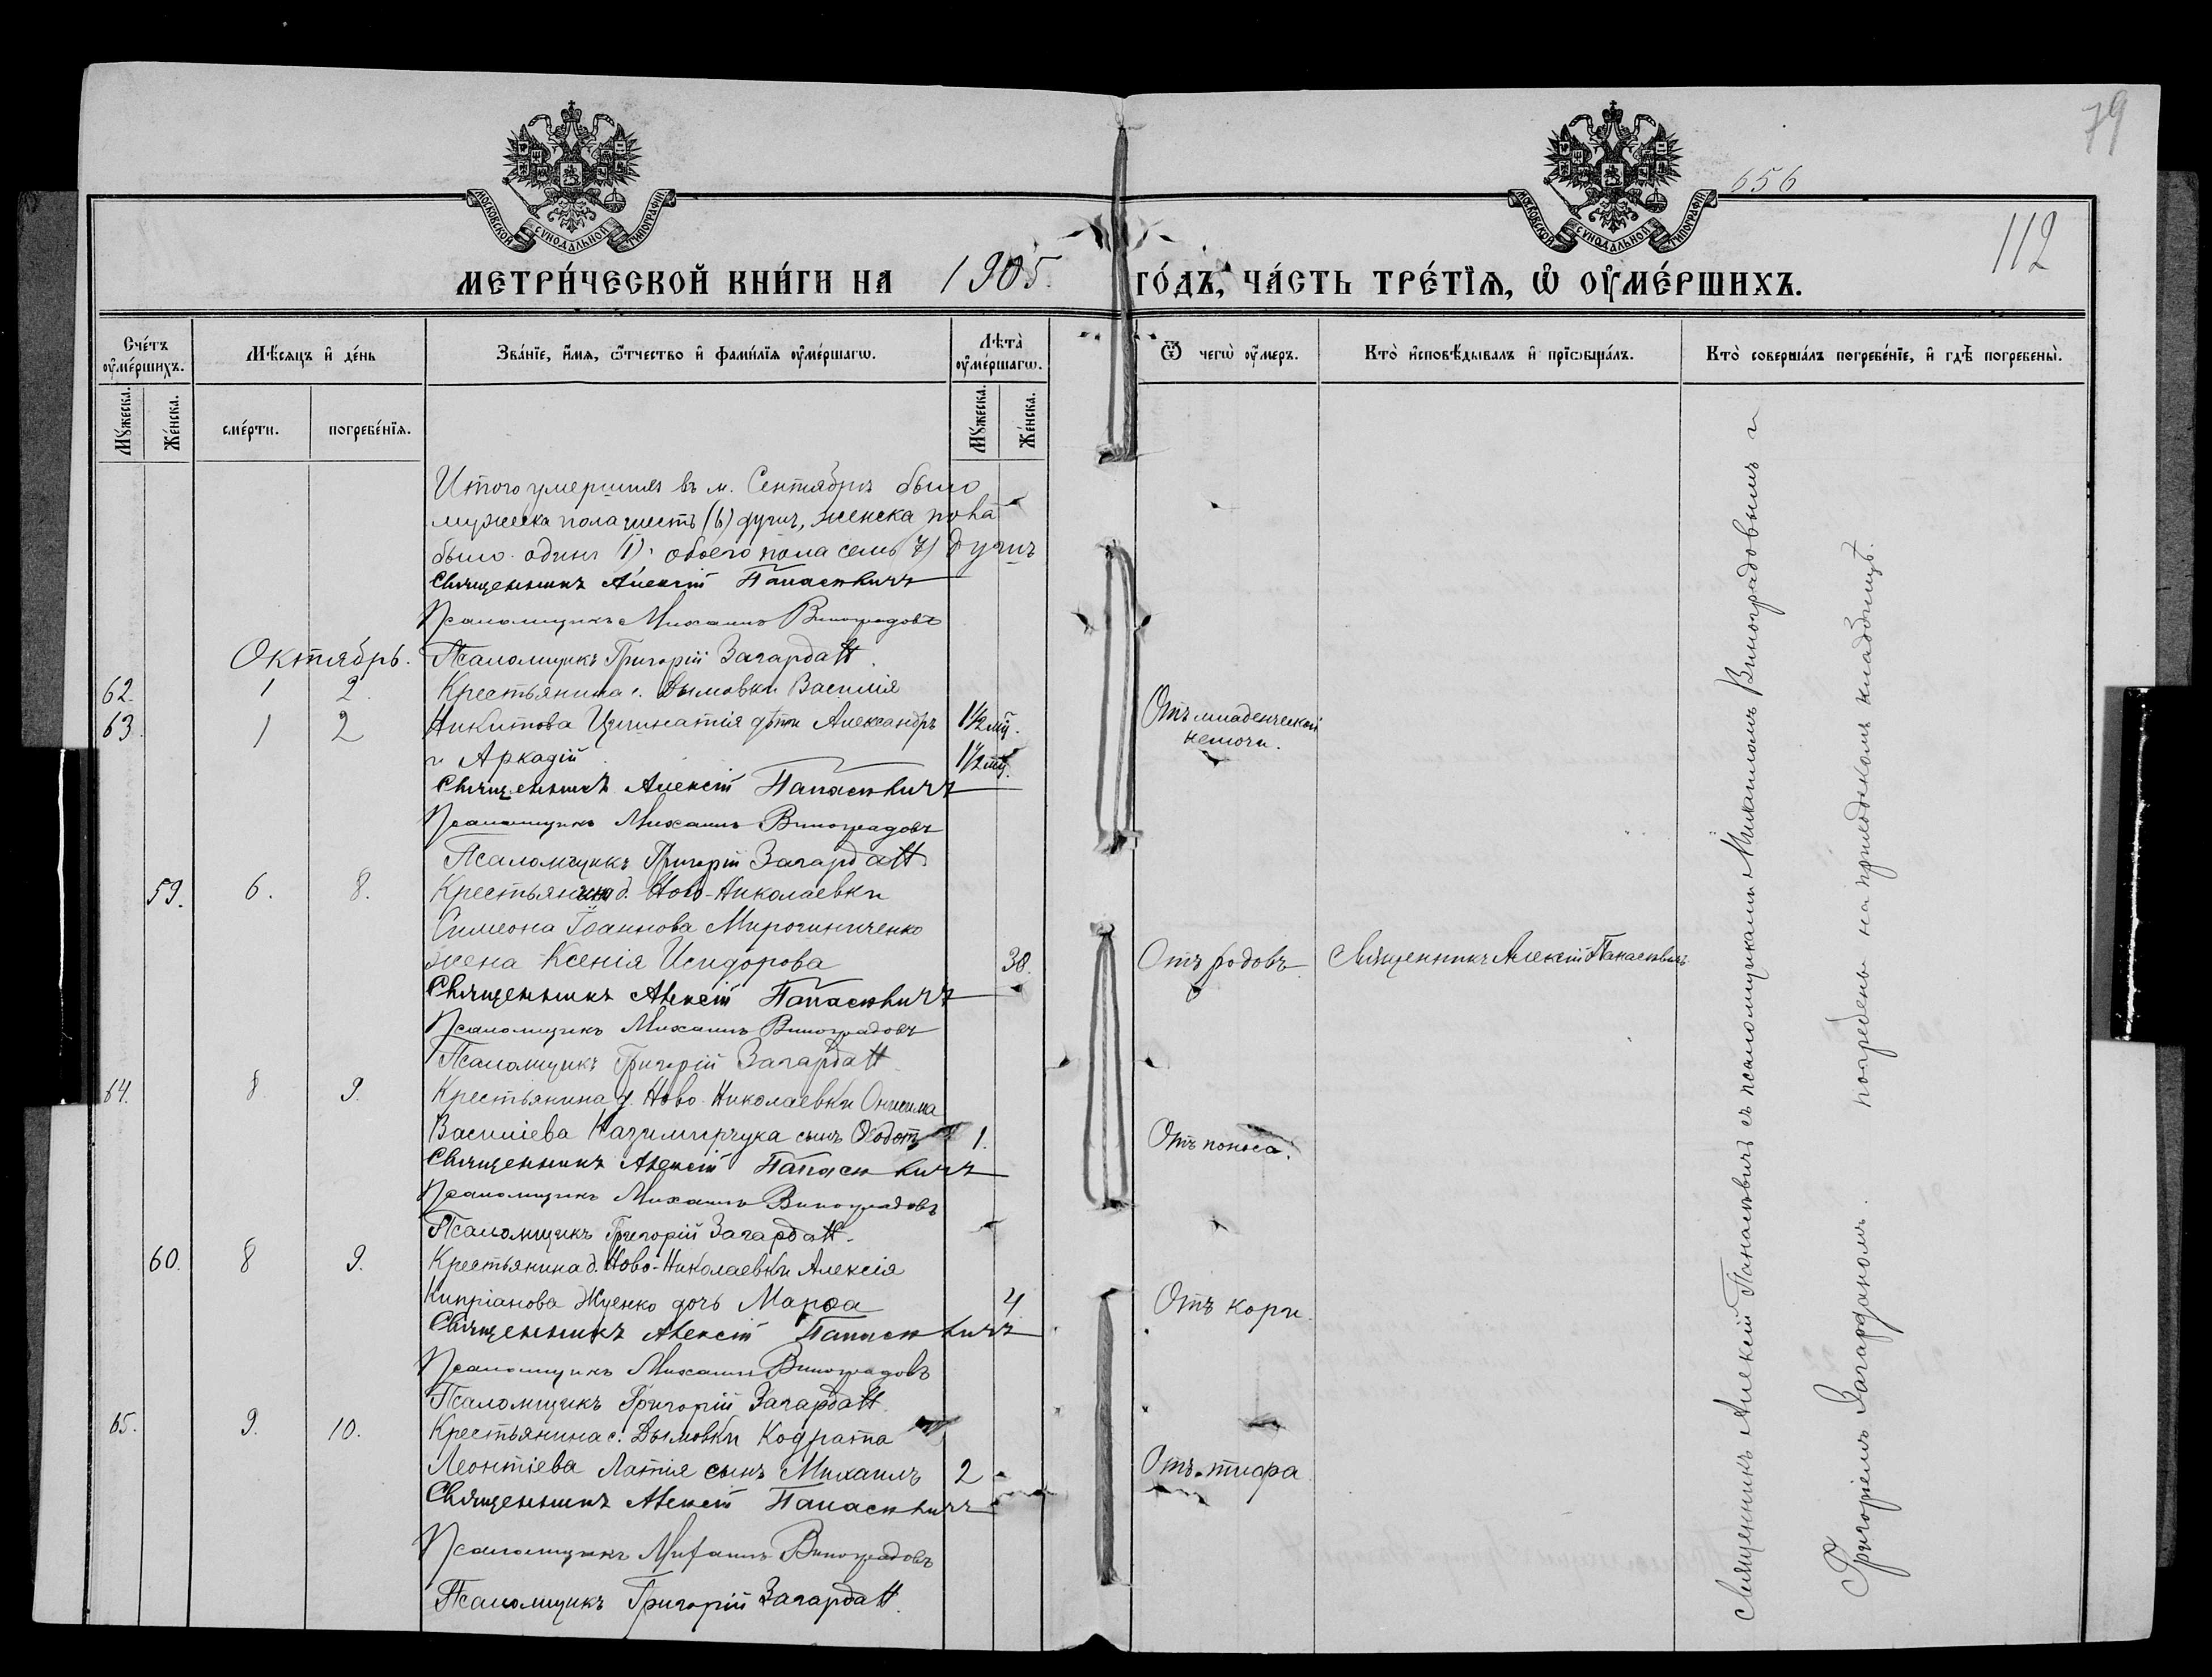 79
656
112
МОСКОВСКОЙ СУНОДАЛЬНОЙ ТИПОГРАФІИ
МОСКОВСКОЙ СУНОДАЛЬНОЙ ТИПОГРАФІИ
МЕТРИ́ЧЕСКОЙ КНИ́ГИ НА 1905. ГО́ДЪ, ЧА́СТЬ ТРЕ́ТІѦ, Ѡ҆ ОУ҆МЕ́РШИХЪ.
Сче́тъ оу҆ме́ршихъ.
Мѣ́сяцъ и҆ де́нь
Зва́нїе, и҆́мѧ, ѻ҆́тчество и҆ фами́лїѧ оу҆ме́ршагѡ.
Лѣта̀ оу҆ме́ршагѡ.
Ѿ чегѡ̀ оу҆́меръ.
Кто̀ и҆сповѣ́дывалъ и҆ прїѡбща́лъ.
Кто̀ соверша́лъ погребе́нїе, и҆ гдѣ̀ погребены̀.
Мꙋ́жеска.
Же́нска.
сме́рти.
погребе́нїѧ.
Мꙋ́жеска.
Же́нска.
Итого умершихъ въ м. Сентябрѣ было
мужеска пола шесть (6) душъ, женска пола
было одинъ (1): обоего пола семь 7) душъ
Священникъ Алексій Панасевичъ
Псаломщикъ Михаилъ Виноградовъ
Октябрь. Псаломщикъ Григорій Загардан.
62. 1 2. Крестьянина с. Дымовки Василія
63. 1 2 Никитова дѣти Александръ 1½ мц. Отъ младенческой
и Аркадій 1½ мц. немочи.
Священникъ Алексій Панасевичъ
Псаломщикъ Михаилъ Виноградовъ
Псаломщикъ Григорій Загардан
59. 6. 8. Крестьянина д. Ново-Николаевки
Симеона Іоаннова Мирошниченко
жена Ксенія Исидорова 38. Отъ родовъ Священникъ Алексій Панасевичъ
Священникъ Алексій Панасевичъ
Псаломщикъ Михаилъ Виноградовъ
Псаломщикъ Григорій Загардан
64. 8 9. Крестьянина д. Ново-Николаевки Онисима
Василіева Казимирчука сынъ Ѳеодотъ 1. Отъ поноса.
Священникъ Алексій Панасевичъ
Псаломщикъ Михаилъ Виноградовъ
Псаломщикъ Григорій Загардан.
60. 8 9. Крестьянина д. Ново-Николаевки Алексія
Кипріанова дочь Марѳа 4 Отъ кори
Священникъ Алексій Панасевичъ
Псаломщикъ Михаилъ Виноградовъ
Псаломщикъ Григорій Загардан
65. 9. 10. Крестьянина с. Дымовки Кодрата
Леонтіева Латія сынъ Михаилъ 2 Отъ тифа
Священникъ Алексій Панасевичъ
Псаломщикъ Михаилъ Виноградовъ
Псаломщикъ Григорій Загардан.
Священникъ Алексій Панасевичъ съ псаломщиками Михаиломъ Виноградовымъ и
Григоріемъ Загарданомъ. погребены на приходскомъ кладбищѣ.